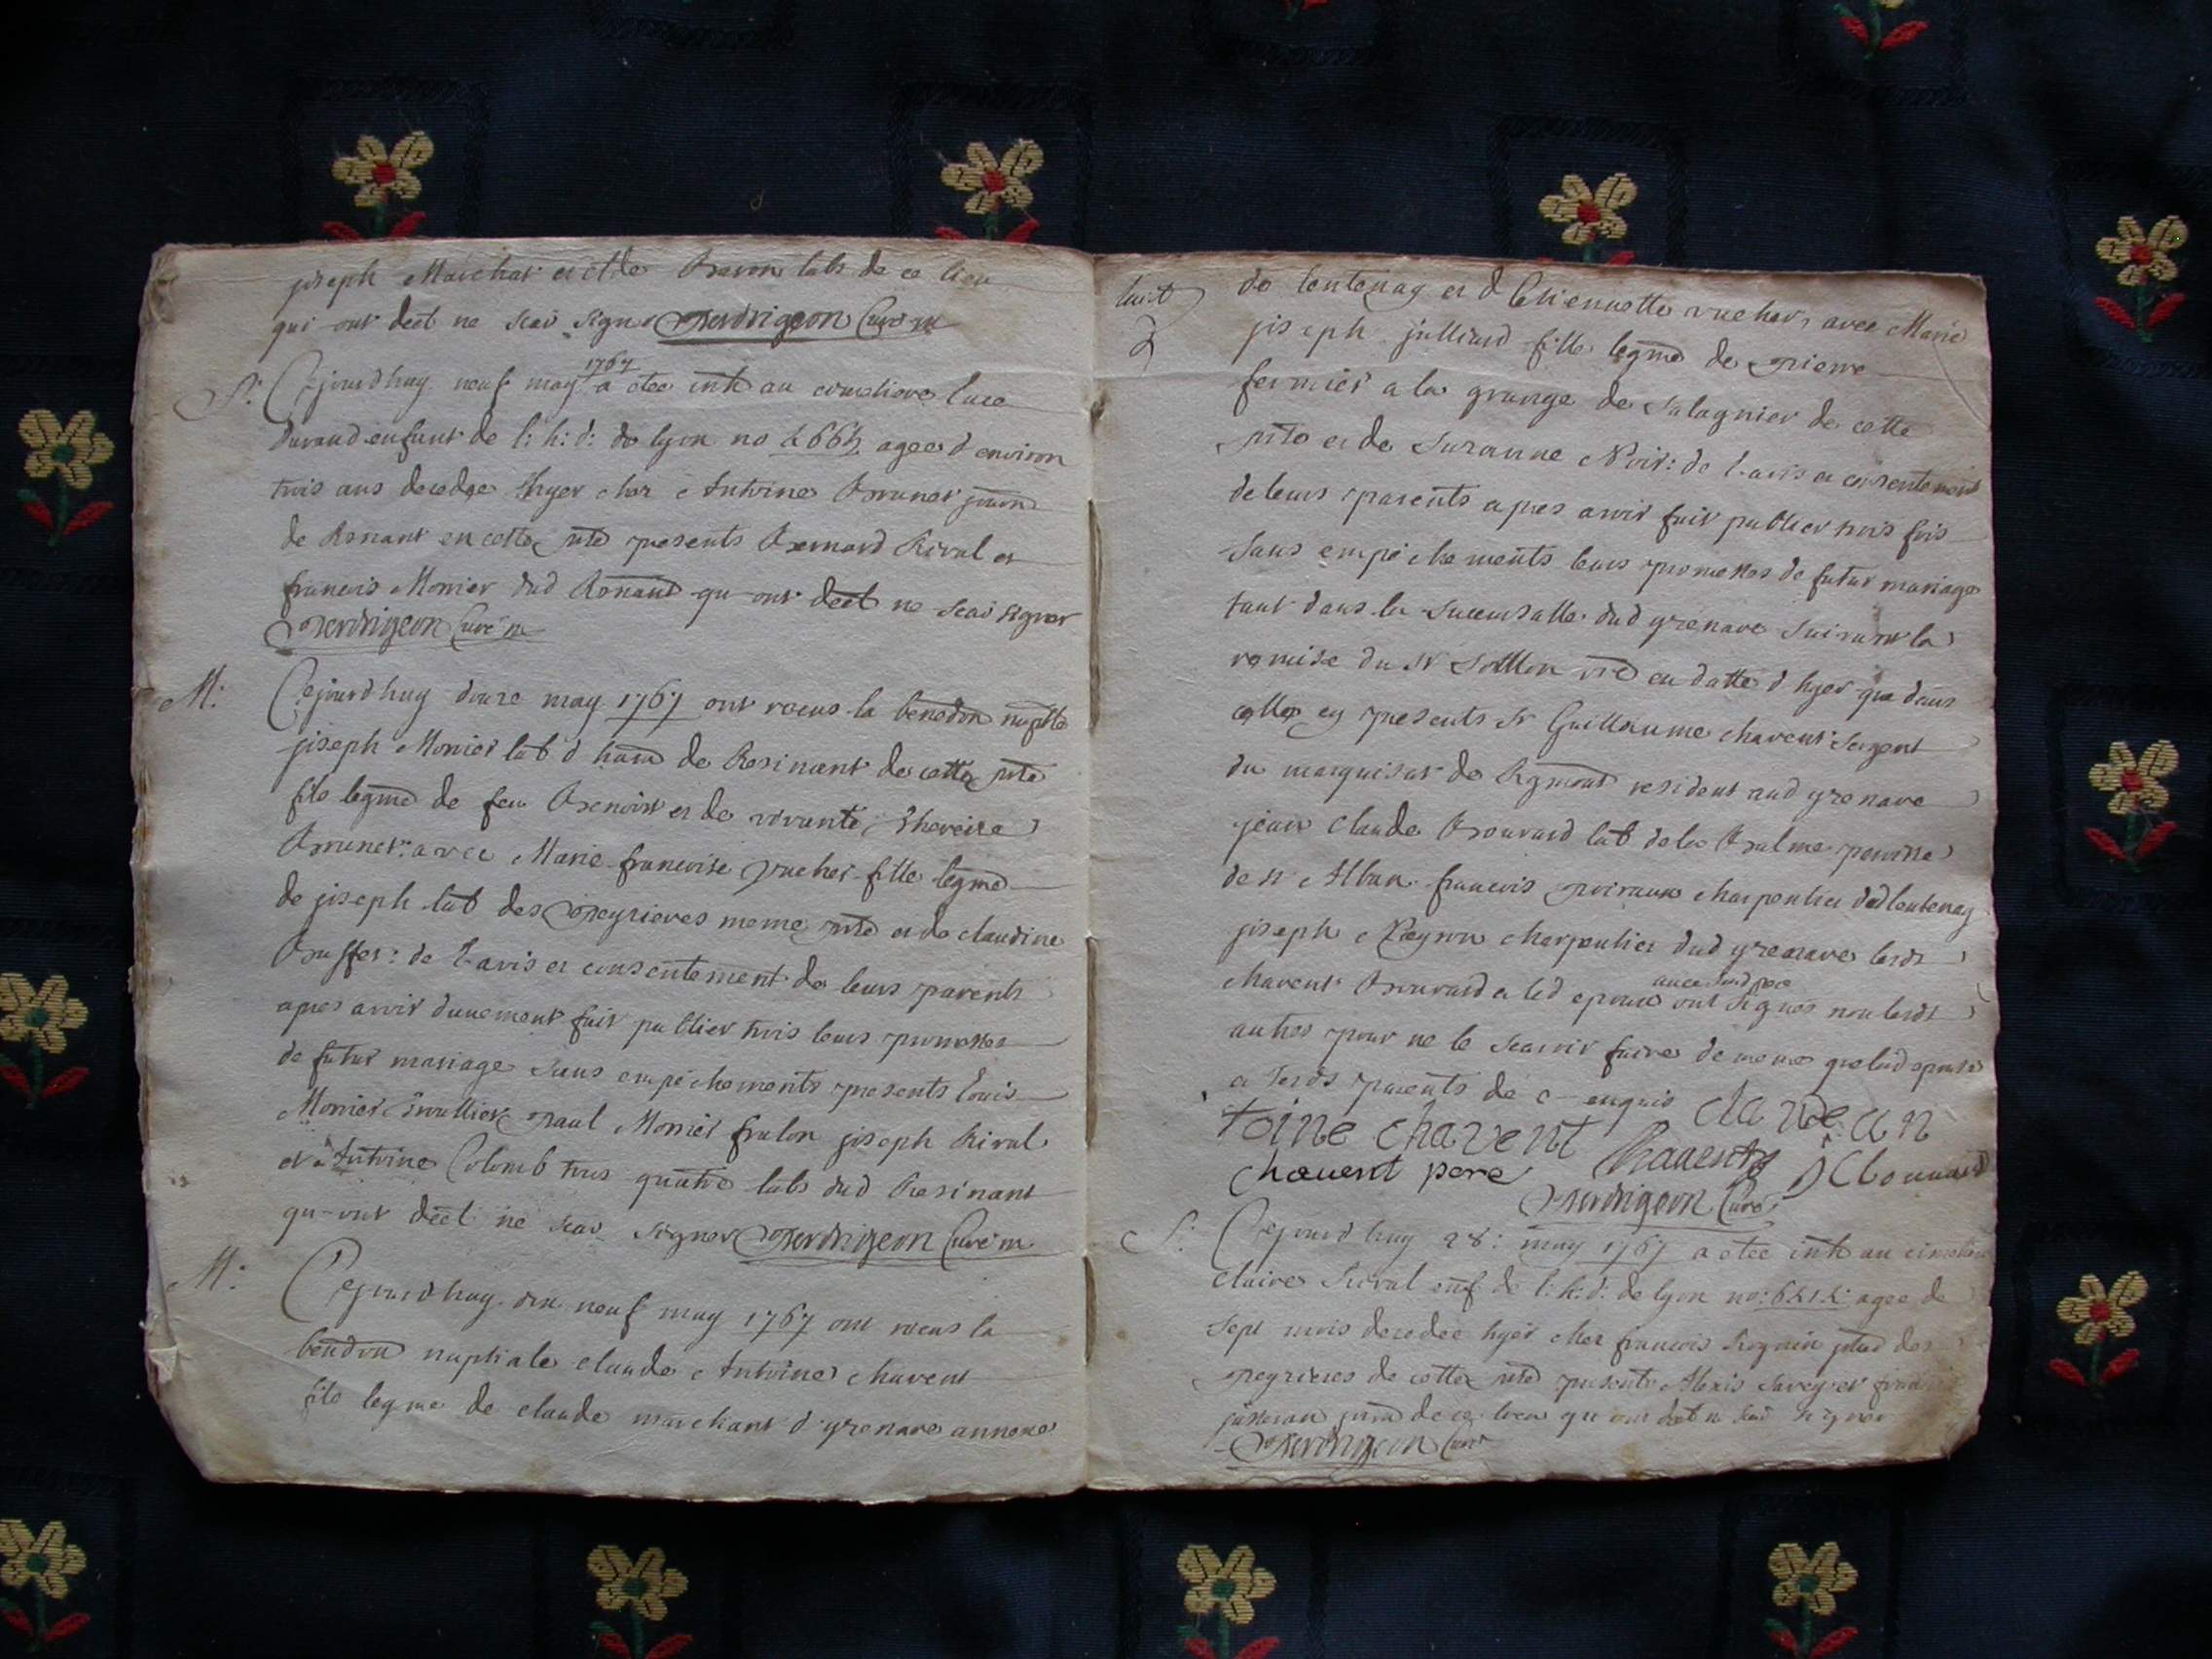 joseph Marchat et Cl.de lab de ce lieu
qui ont decl ne scav signer Perdrigeon Curé
S: Cejourdhuy neuf may 1767 a etee inh au cimetiere Luce
Durand enfant de l: h: d: de lyon no agee d environ
trois ans decedee hyer chez Antoine Brunet
de Renant en cette presents Bernard Rival et
francois Monier dud Renand qu ont decl ne scav signer
Perdrigeon Curé
M: Cejourdhuy douze may 1767 ont receus la benedon nuptle
joseph Monier lab d de Resinant de cette
fils legme de feu Benoist et de vivante Thereise
Brunet: avec Marie francoise Vucher fille legme
de joseph lab des Peyrieres meme et de claudine
de l avis et consentement de leurs parents
apres avoir duuement fait publier trois leurs promesses
de futur mariage sans empechements presents Louis
Monier paul Monier joseph Rival
et Antoine Colomb tous quatre labs dud Resinant
qu-ont decl ne scav signer Perdrigeon Curé
M: Cejourdhuy dix neuf may 1767 ont receus la
benedon nuptiale claude Antoine chavent
fils legme de claude marchant d yzenave annexe
de lentenay et d Etiennette vucher, avec Marie
joseph julliard fille legme de pierre
fermier a la grange de Salagnier de cette
et de Suzanne Noir: de l avis et consentement
de leurs parents apres avoir fait publier trois fois
sans empechements leurs promesses de futur mariage
tant dans la Succursalle dud yzenave suivant la
remise du Sr en datte d hyer que dans
celle cy presents Sr Guillaume chavent Sergent
du marquisat de resident aud yzenave
jean Claude Bouvard lab de la Balme paroisse
de St Alban francois charpentier dud lentenay
joseph Peyron charpentier dud yzenave lesds
chavent Bouvard et led epoux avec sond pere ont signés non lesds
autres pour ne le scavoir faire de meme que lad epouse
et sesds parents de ce enquis claude an
toine chavent Chavent JC Bouvard
chavent pere
Perdrigeon Curé
S: Cejourdhuy 28: may 1767 a etee inh au cimetiere
claire enf de l: h: d: de lyon no: agee de
sept mois decedee hyer chez francois des
peyrieres de cette presents Alexis
de ce lieu qu ont decl ne scav signer
Perdrigeon Curé